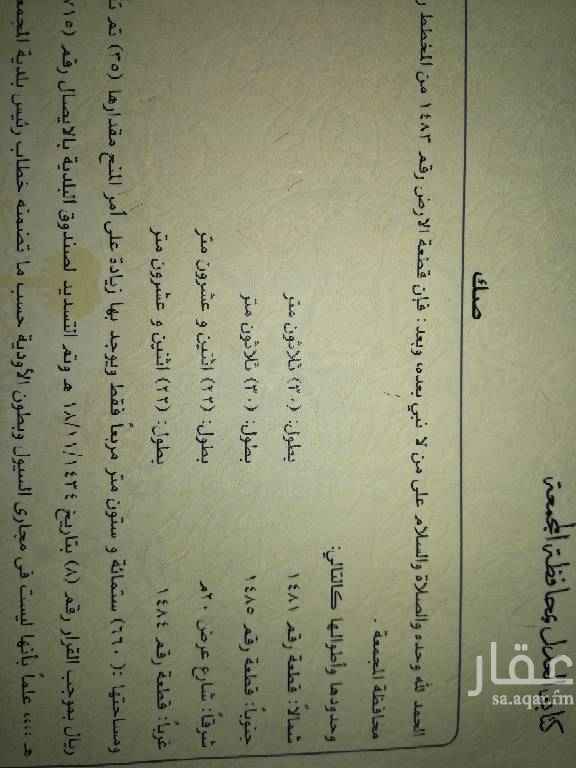 كتابة عدل محافظة المجمعة
صك
الحمد لله وحده والصلاة والسلام على من لا نبي بعده، وبعد: فإن قطعة الارض رقم ١٤٨٣ من المخطط
محافظة المجمعة .
وحدودها وأطوالها كالتالي:
شمالاً: قطعة رقم ١٤٨١ بطول: (٣٠) ثلاثون متر
جنوباً: قطعة رقم ١٤٨٥ بطول: (٣٠) ثلاثون متر
شرقاً: شارع عرض ٢٠م بطول: (٢٢) اثنين و عشرون متر
غرباً: قطعة رقم ١٤٨٤ بطول: (٢٢) اثنين و عشرون متر
ومساحتها :( ٦٦٠) ستمائة و ستون متر مربعاً فقط ويوجد بها زيادة على أمر المنح مقدارها (٣٥) تم
ريال بموجب القرار رقم (٨) بتاريخ ١٨/١١/١٤٣٤ هـ وتم التسديد لصندوق البلدية بالايصال رقم
هـ ،،،، علماً بأنها ليست في مجاري السيول وبطون الأودية حسب ما تضمنه خطاب رئيس بلدية
عقار
sa.aqar.fm